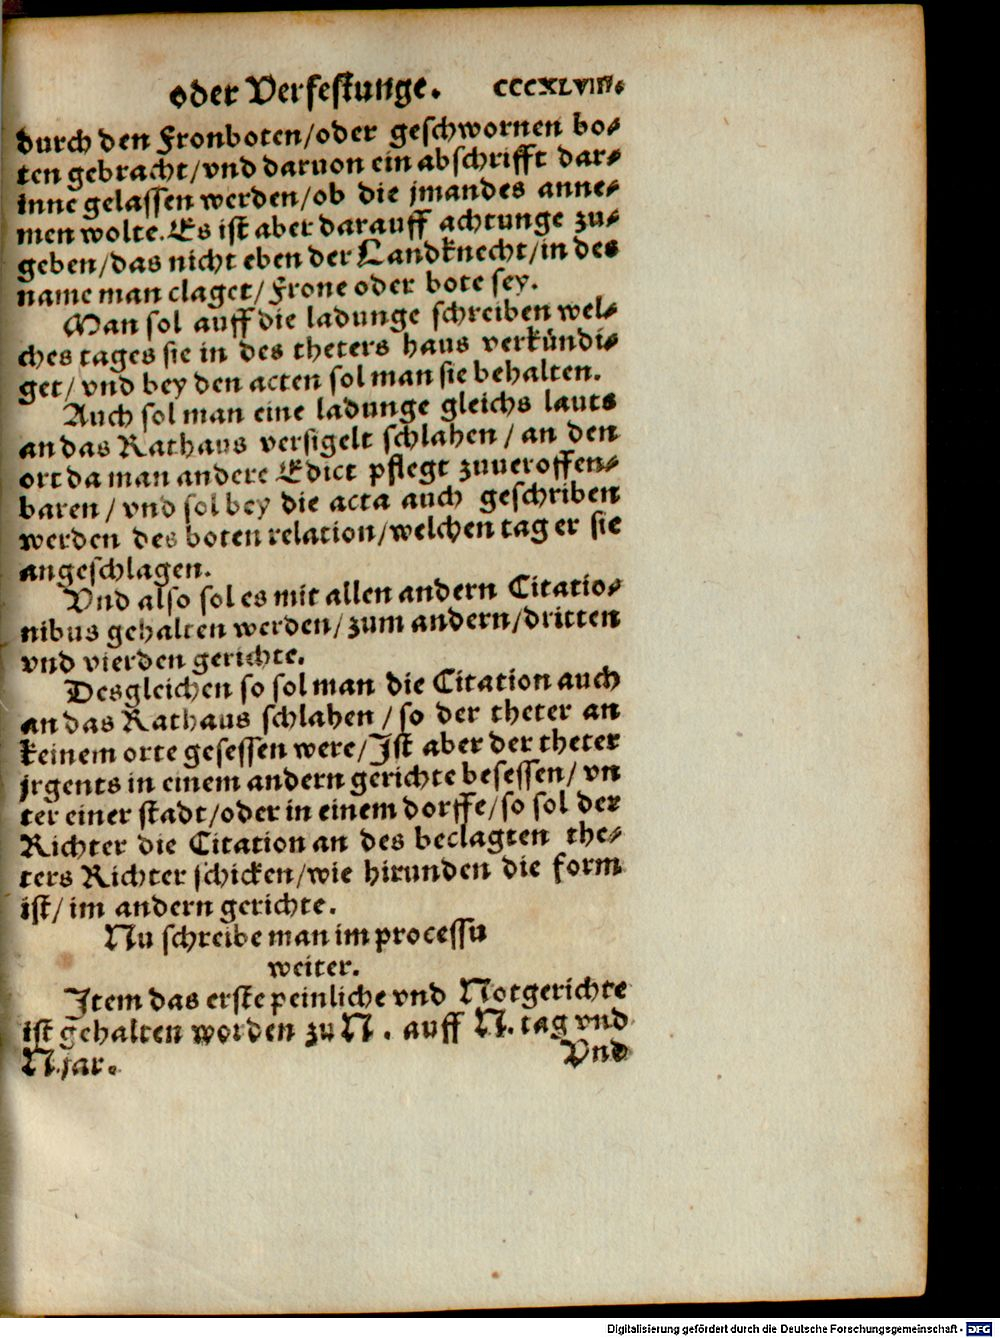 oder Verfestunge. CCCXLVIII.
durch den Fronboten/oder geschwornen bo⸗
ten gebracht/vnd daruon ein abschrifft dar⸗
inne gelassen werden/ob die jmandes anne⸗
men wolte. Es ist aber darauff achtunge zu⸗
geben/das nicht eben der Landknecht/in des
name man claget/Frone oder bote sey.
Man sol auff die ladunge schreiben wel⸗
ches tages sie in des theters haus verkündi⸗
get/vnd bey den acten sol man sie behalten.
Auch sol man eine ladunge gleichs lauts
an das Rathaus versigelt schlahen/an den
ort da man andere Edict pflegt zuueroffen⸗
baren/vnd sol bey die acta auch geschriben
werden des boten relation/welchen tag er sie
angeschlagen.
Vnd also sol es mit allen andern Citatio⸗
nibus gehalten werden/zum andern/dritten
vnd vierden gerichte.
Desgleichen so sol man die Citation auch
an das Rathaus schlahen/so der theter an
keinem orte gesessen were/Ist aber der theter
jrgents in einem andern gerichte besessen/vn
ter einer stadt/oder in einem dorffe/so sol der
Richter die Citation an des beclagten the⸗
ters Richter schicken/wie hirunden die form
ist/im andern gerichte.
Nu schreibe man im processu
weiter.
Item das erste peinliche vnd Notgerichte
ist gehalten worden zu N. auff N. tag vnd
N. jar.
Vnd
Digitalisierung gefördert durch die Deutsche Forschungsgemeinschaft - DFG